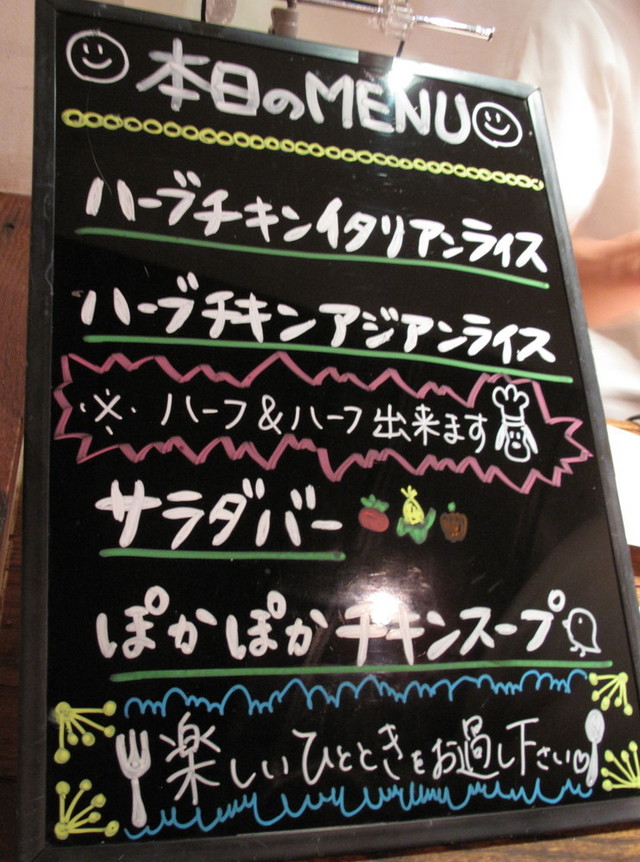 本日のMENU
ハーブチキンイタリアンライス
ハーブチキンアジアンライス
※ ハーフ&ハーフ 出来ます
サラダバー
ぽかぽかチキンスープ
楽しいひとときをお過し下さい♡